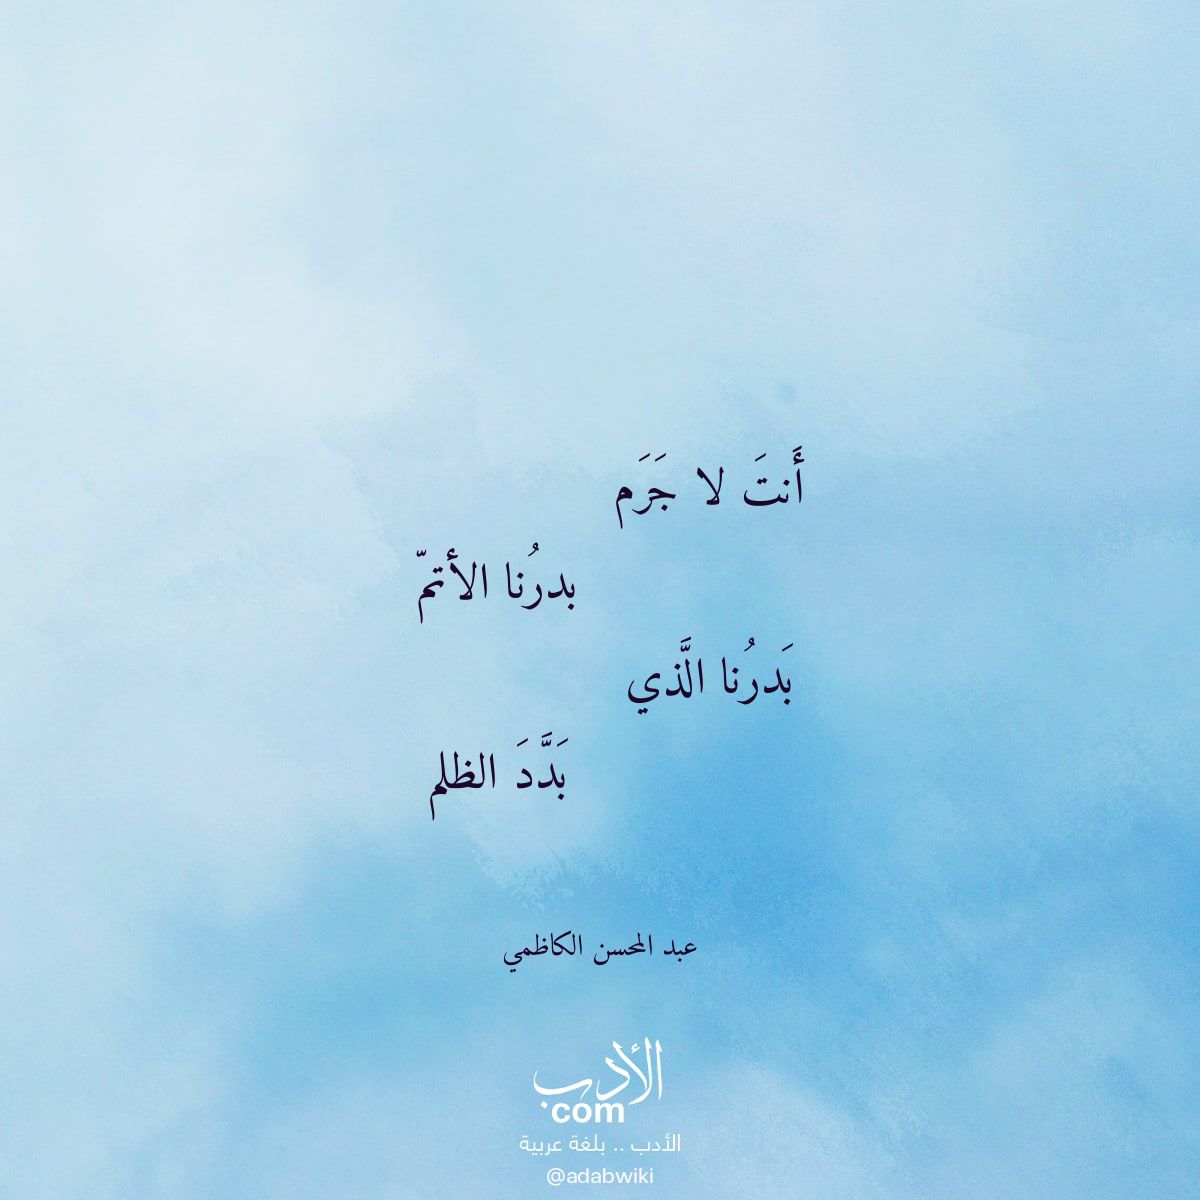 أَنتَ لا جَرَم
بدرُنا الأتمّ
بَدرُنا الَّذي
بَدَّدَ الظلم
عبد المحسن الكاظمي
الأدب
com
الأدب .. بلغة عربية
@adabwiki